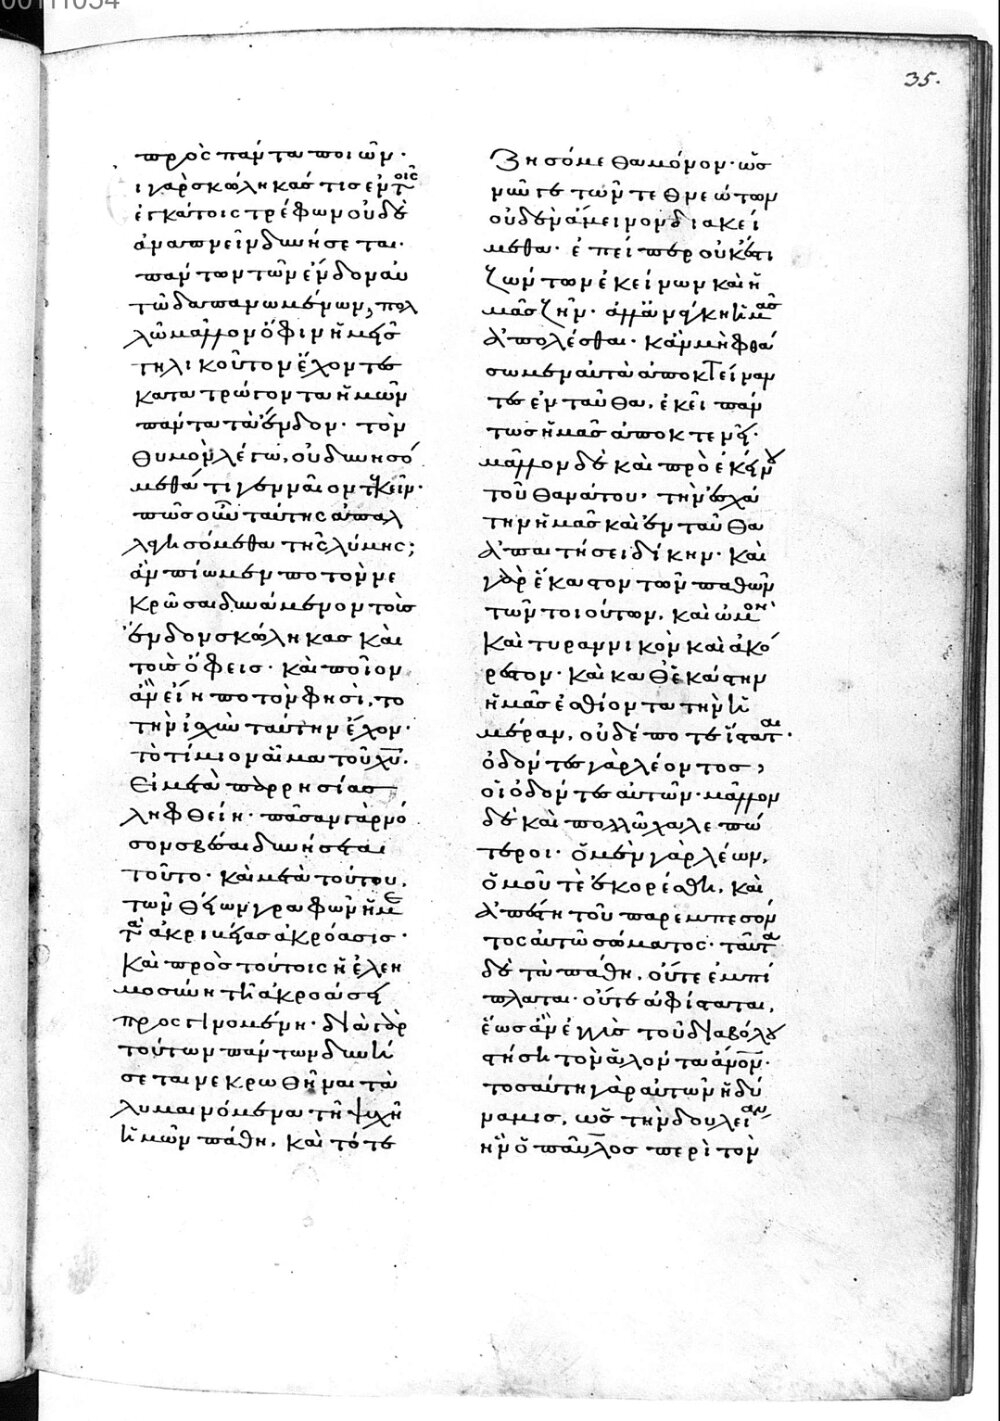 35.
πρὸς πάντα ποιῶν·
ι γὰρ σκώληκάς τις ἐν τοῖς
ἐγκάτοις τρέφων οὐδὲ
ἀναπνεῖν δυνήσεται·
πάντων τῶν ἔνδον αὐ
τῶ δαπανωμένων, πολ
λῶ μᾶλλον ὄφιν ἡμεῖς
τηλικοῦτον ἔχοντες
κατατρώγοντα ἡμῶν
πάντα τὰ ἔνδον· τὸν
θυμὸν λέγω, οὐ δυνησό
μεθά τι γενναῖον τεκεῖν·
πῶς οὖν ταύτης ἀπαλ
λαγησόμεθα τῆς λύμης;
ἂν πίωμεν ποτὸν νε
κρῶσαι δυνάμενον τοὺς
ἔνδον σκώληκας καὶ
τοὺς ὄφεις· καὶ ποῖον
ἂν εἴη ποτὸν φησὶ, το
τὴν ἰσχὺν ταύτην ἔχον·
τὸ τίμιον αἷμα τοῦ χυ.
εἰ μετὰ παρρησίας
ληφθείη· πᾶσαν γὰρ νό
σον σβέσαι δυνήσεται
τοῦτο· καὶ μετὰ τούτου,
τῶν θείων γραφῶν ἡ με
τὰ ἀκριβείας ἀκρόασις·
καὶ πρὸς τούτοις ἡ ἐλεη
μοσύνη τῆ ἀκροάσει
προσγινομένη· διὰ γὰρ
τούτων πάντων δυνή
σεται νεκρωθῆναι τὰ
λυμαινόμενα τῆ ψυχῆ
ἡμῶν πάθη, καὶ τότε
ζησόμεθα μόνον· ὡς
νῦν γε τῶν τεθνεώτων
οὐδὲν ἄμεινον διακεί
μεθα· ἐπείπερ οὐκ ἔστι
ζώντων ἐκείνων καὶ ἡ
μᾶς ζῆν· ἀλλὰ ἀνάγκη ἡμᾶς
ἀπολέσθαι· κἂν μὴ φθά
σωμεν αὐτὰ ἀποκτείναν
τες ἐνταῦθα, ἐκεῖ πάν
τως ἡμᾶς ἀποκτενεῖ·
μᾶλλον δὲ καὶ πρὸ ἐκείνου
τοῦ θανάτου, τὴν ἐσχά
την ἡμᾶς καὶ ἐνταῦθα
ἀπαιτήσει δίκην· καὶ
γὰρ ἕκαστον τῶν παθῶν
τῶν τοιούτων, καὶ ὠμὸν
καὶ τυραννικὸν καὶ ἀκό
ρεστον· καὶ καθ' ἑκάστην
ἡμᾶς ἐσθίοντα τὴν ἡ
μέραν, οὐδέποτε ἵσταται·
ὀδόντες γὰρ λέοντος,
οἱ ὀδόντες αὐτῶν· μᾶλλον
δὲ καὶ πολλῶ χαλεπώ
τεροι· ὁ μὲν γὰρ λέων,
ὁμοῦ τὲ ἐκορέσθη, καὶ
ἀπέστη τοῦ παρεμπεσόν
τος αὐτῶ σώματος· ταῦτα
δὲ τὰ πάθη, οὔτε ἐμπί
πλαται· οὔτε ἀφίσταται,
ἕως ἂν ἐγγὺς τοῦ διαβόλου
στήση τὸν ἁλόντα ἄνον·
τοσαύτη γὰρ αὐτῶν ἡ δύ
ναμις, ὡς τὴν δουλείαν,
ἣν ὁ παῦλος περὶ τὸν